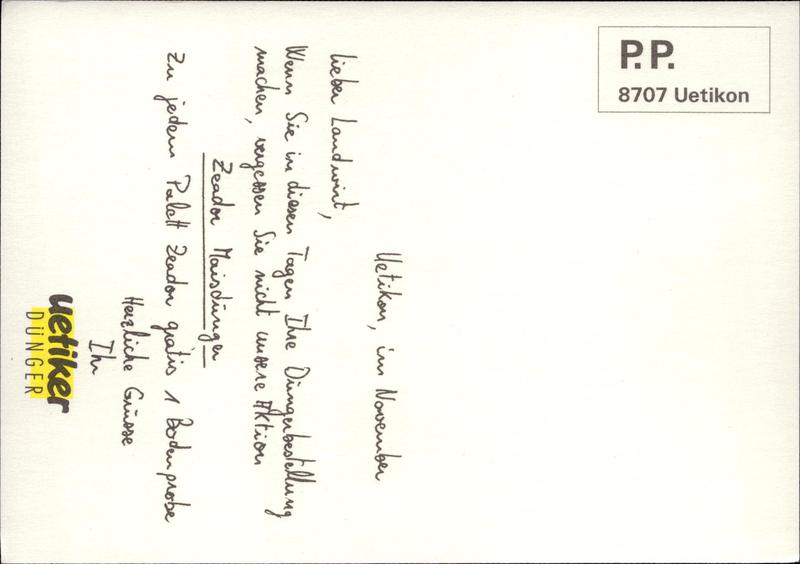 P.P.
8707 Uetikon
Uetikon, im November
lieber Landwirt,
Wenn Sie in diesen Tagen Ihre Düngerbestellung
machen, vergessen Sie nicht unsere Aktion
Zeador Maisdünger
Zu jedem Palett Zeador gratis 1 Bodenprobe
Herzliche Grüsse
Ihr
uetiker
DÜNGER